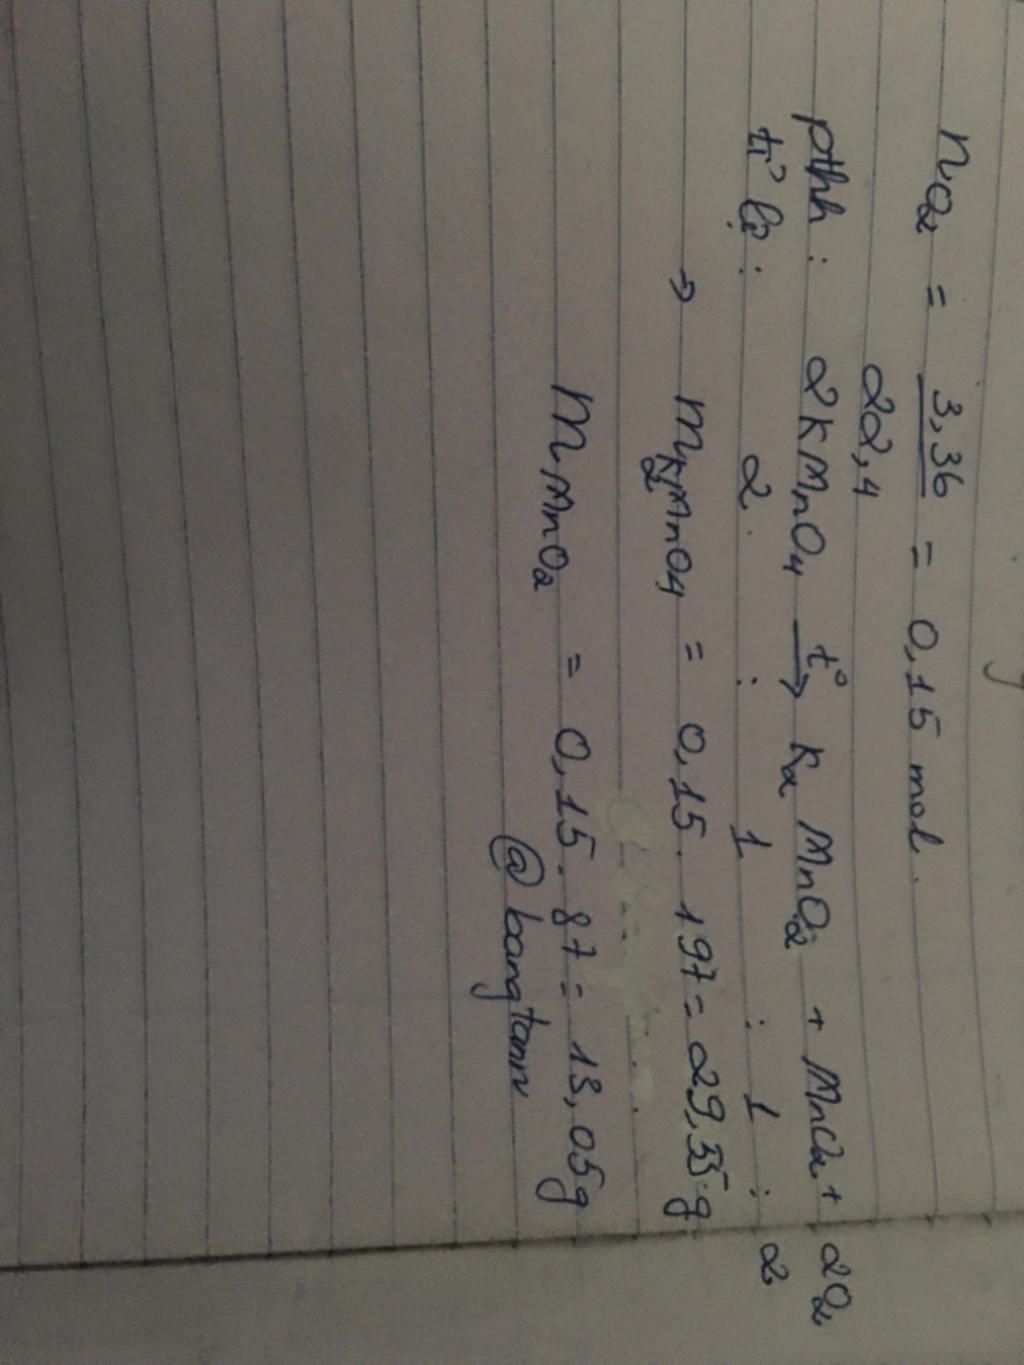 nO2 = 3,36 / 22,4 = 0,15 mol.
pthh : 2KMnO4 t°→ K2MnO2 + MnO2 + 2O2
tỉ lệ : 2 : 1 : 1 : 2
→ mK2MnO4 = 0,15 . 197 = 29,55 g
mMnO2 = 0,15 . 87 = 13,05g
@bangtann